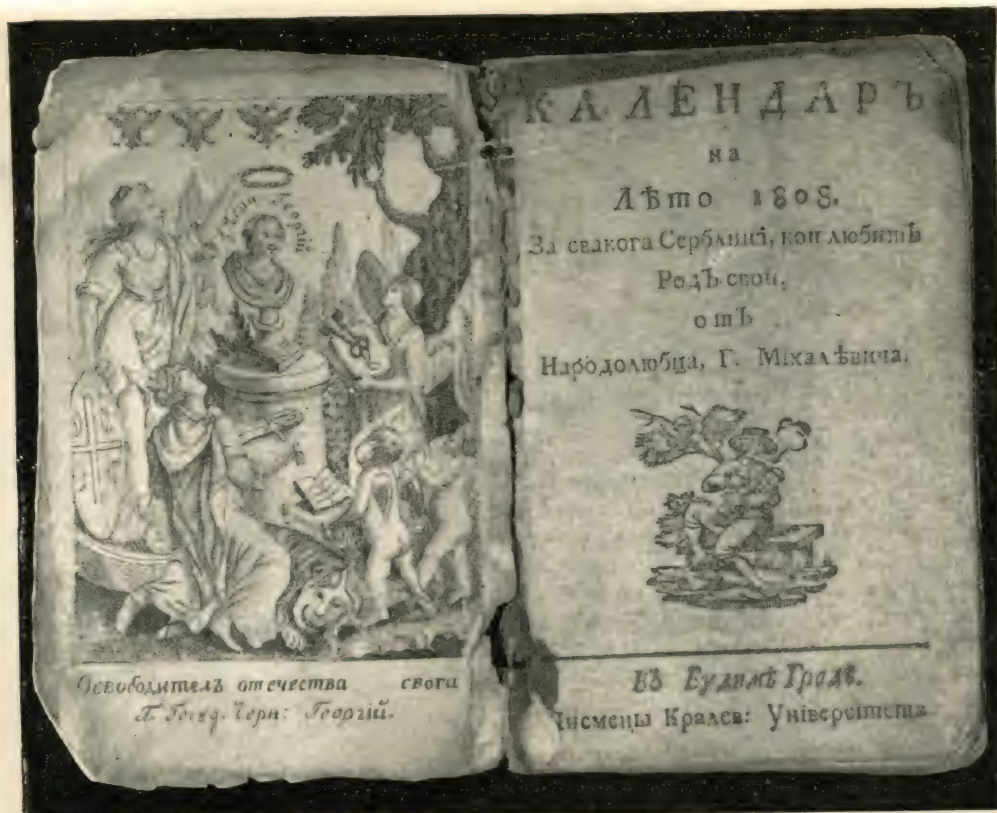 Георгій
Освободителъ отечества своги
Г. Госуд. Черн: Георгій.
КАЛЕНДАРЪ
на
Лѣто 1808.
За свакога Сербліина, кои любитъ
Родъ свои,
отъ
Народолюбца, Г. Міхалѣвича.
ВЪ Будимѣ Градѣ.
Писмены Кралев: Університета